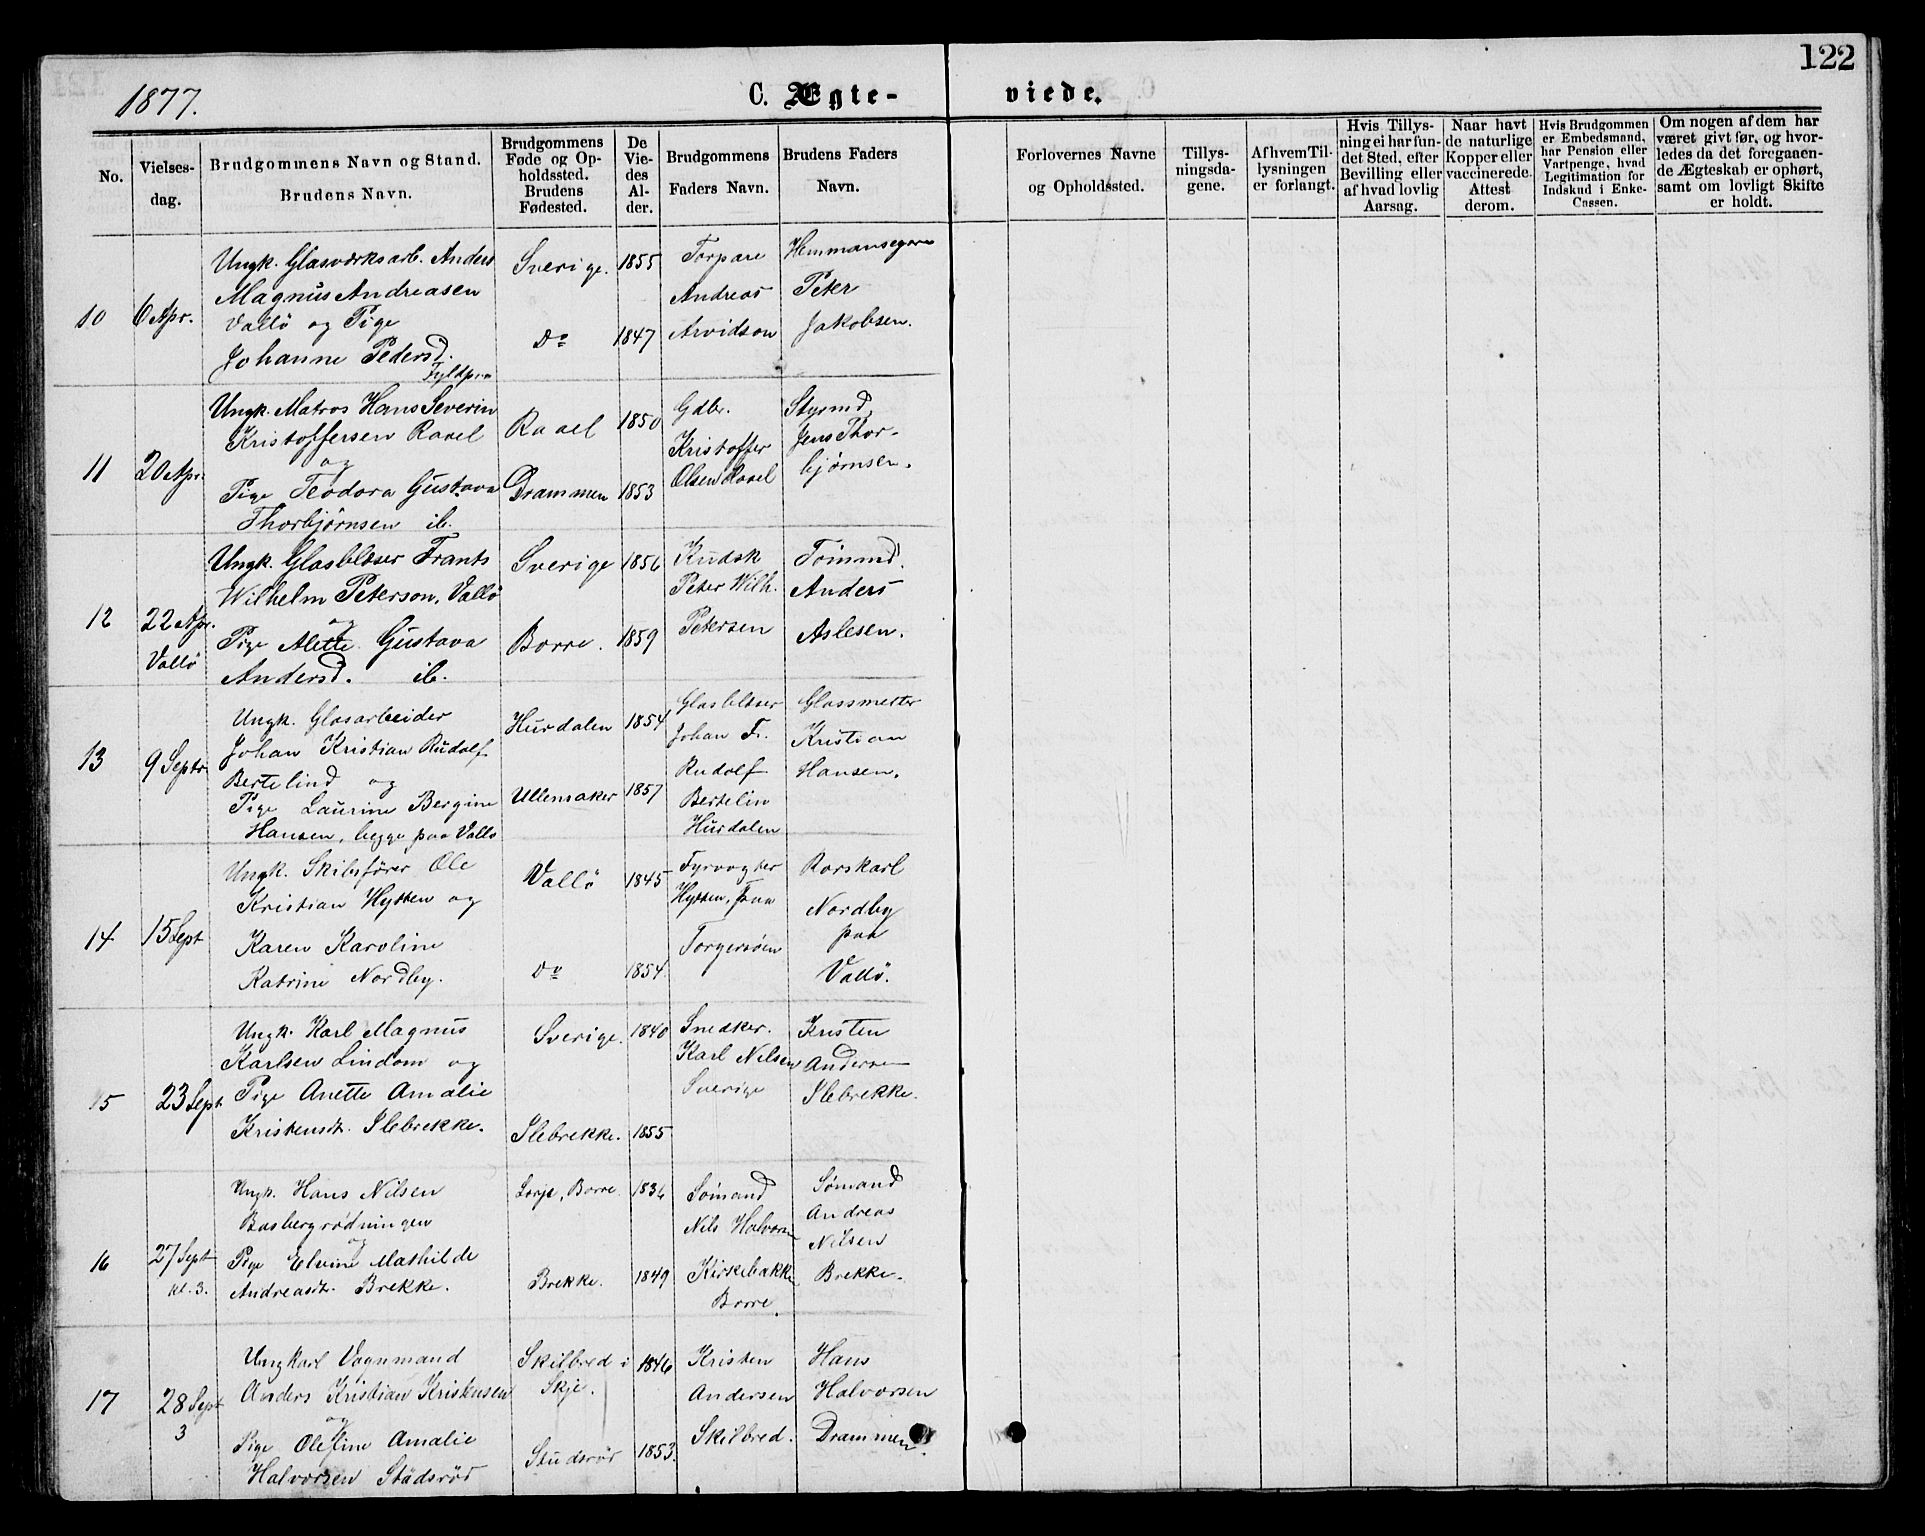 122
1877.
C. Ægte-
viede.
No.
Vielses-
dag.
Brudgommens Navn og Stand.
Brudens Navn.
Brudgommens
Føde og Op-
holdssted.
Brudens
Fødested.
De
Vie-
des
Al-
der.
Brudgommens
Faders Navn.
Brudens Faders
Navn.
Forlovernes Navne
og Opholdssted.
Tillys-
ningsda-
gene.
Af hvem Til-
lysningen
er forlangt.
Hvis Tillys-
ning ei har fun-
det Sted, efter
Bevilling eller
af hvad lovlig
Aarsag.
Naar havt
de naturlige
Kopper eller
vaccinerede.
Attest
derom.
Hvis Brudgommen
er Embedsmand,
har Pension eller
Vartpenge, hvad
Legitimation for
Indskud i Enke-
Cassen.
Om nogen af dem har
været givt før, og hvor-
ledes da det foregaaen-
de Ægteskab er ophørt,
samt om lovligt Skifte
er holdt.
10
6 Apr.
Ungk. Glasværksarb. Anders
Magnus Andreasen
Vallö og Pige
Johanne Pedersd.
Sverige.
Do
1855
1847
Torpare
Andreas
Arvidson
Hemmansegare
Peter
Jakobsen.
11
20 Apr.
Ungk. Matros Hans Severin
Kristoffersen Raael
og
Pige Teodora Gustava
Thorbjørnsen ib.
Raael
Drammen
1850
1853
Gdbr.
Kristoffer
Olsen Raael
Styrmd.
Jens Thor-
bjørnsen.
12
22 Apr.
Vallö
Ungk. Glasblæser Frants
Wilhelm Peterson, Vallö
og
Pige Alette Gustava
Andersd. ib.
Sverige
Borre.
1856
1859
Kudsk
Peter Wilh.
Petersen
Tömmd.
Anders
Aslesen.
13
9 Septr
Ungk. Glasarbeider
Johan Kristian Rudolf
Bertelind og
Pige Laurine Bergine
Hansen, begge paa Vallö
Hurdalen
Ullensaker
1854
1857
Glasblæser
Johan Fr.
Rudolf
Bertelin
Hurdalen
Glassmester
Kristian
Hansen.
14
15 Sept
Ungk. Skibsförer Ole
Kristian Hytten og
Karen Karoline
Katrine Nordby.
Vallö
Do
1845
1854
Fyrvogter
Hytten, paa
Torgersöen
Rorskarl
Nordby
paa
Vallö.
15
23 Sept
Ungk. Karl Magnus
Karlsen Lindom og
Pige Anette Amalie
Kristensdtr. Slebrekke.
Sverige.
Slebrekke.
1840
1855
Snedker.
Karl Nilsen
Sverige
Kristen
Andersen
Slebrekke.
16
27 Sept
kl. 3.
Ungk. Hans Nilsen
Basbergrødningen
og
Pige Elvine Mathilde
Andreasdtr. Brekke.
Borre.
Brekke.
1836
1849
Sömand
Nils Halvorsen
Kirkebakken
Borre.
Sømand
Andreas
Nilsen
Brekke.
17
28 Sept
3
Ungkarl Vognmand
Anders Kristian Kristensen
og
Pige Olefine Amalie
Halvorsen Stådsrød
Skilbred i
Skje.
Studsrød
1846
1853.
Kristen
Andersen
Skilbred.
Hans
Halvorsen
Drammen.